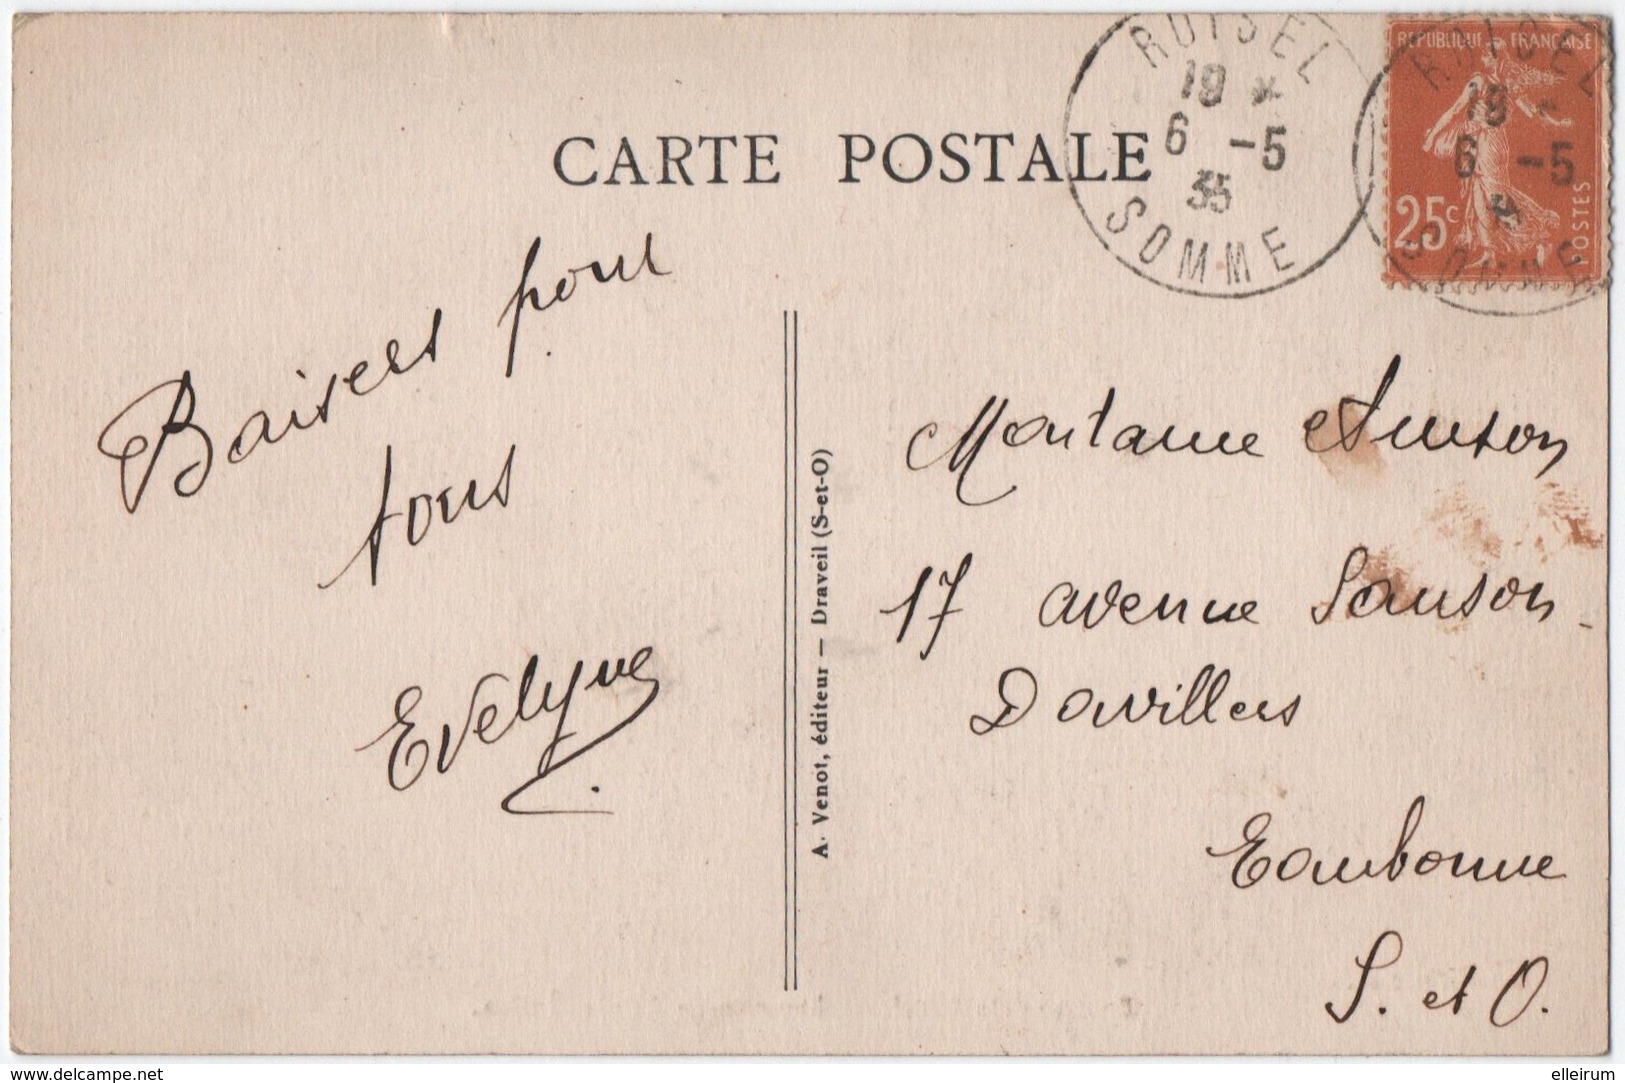 CARTE POSTALE
RUISEL
19 *
6 -5
35
SOMME
REPUBLIQUE FRANCAISE
25c
POSTES
Baisers pour
tous
Evelyne
A. Venot, éditeur — Draveil (S-et-O)
Madame
17 avenue Sanson-
Davillers
Eaubonne
S. et O.
www.delcampe.net
elleirum